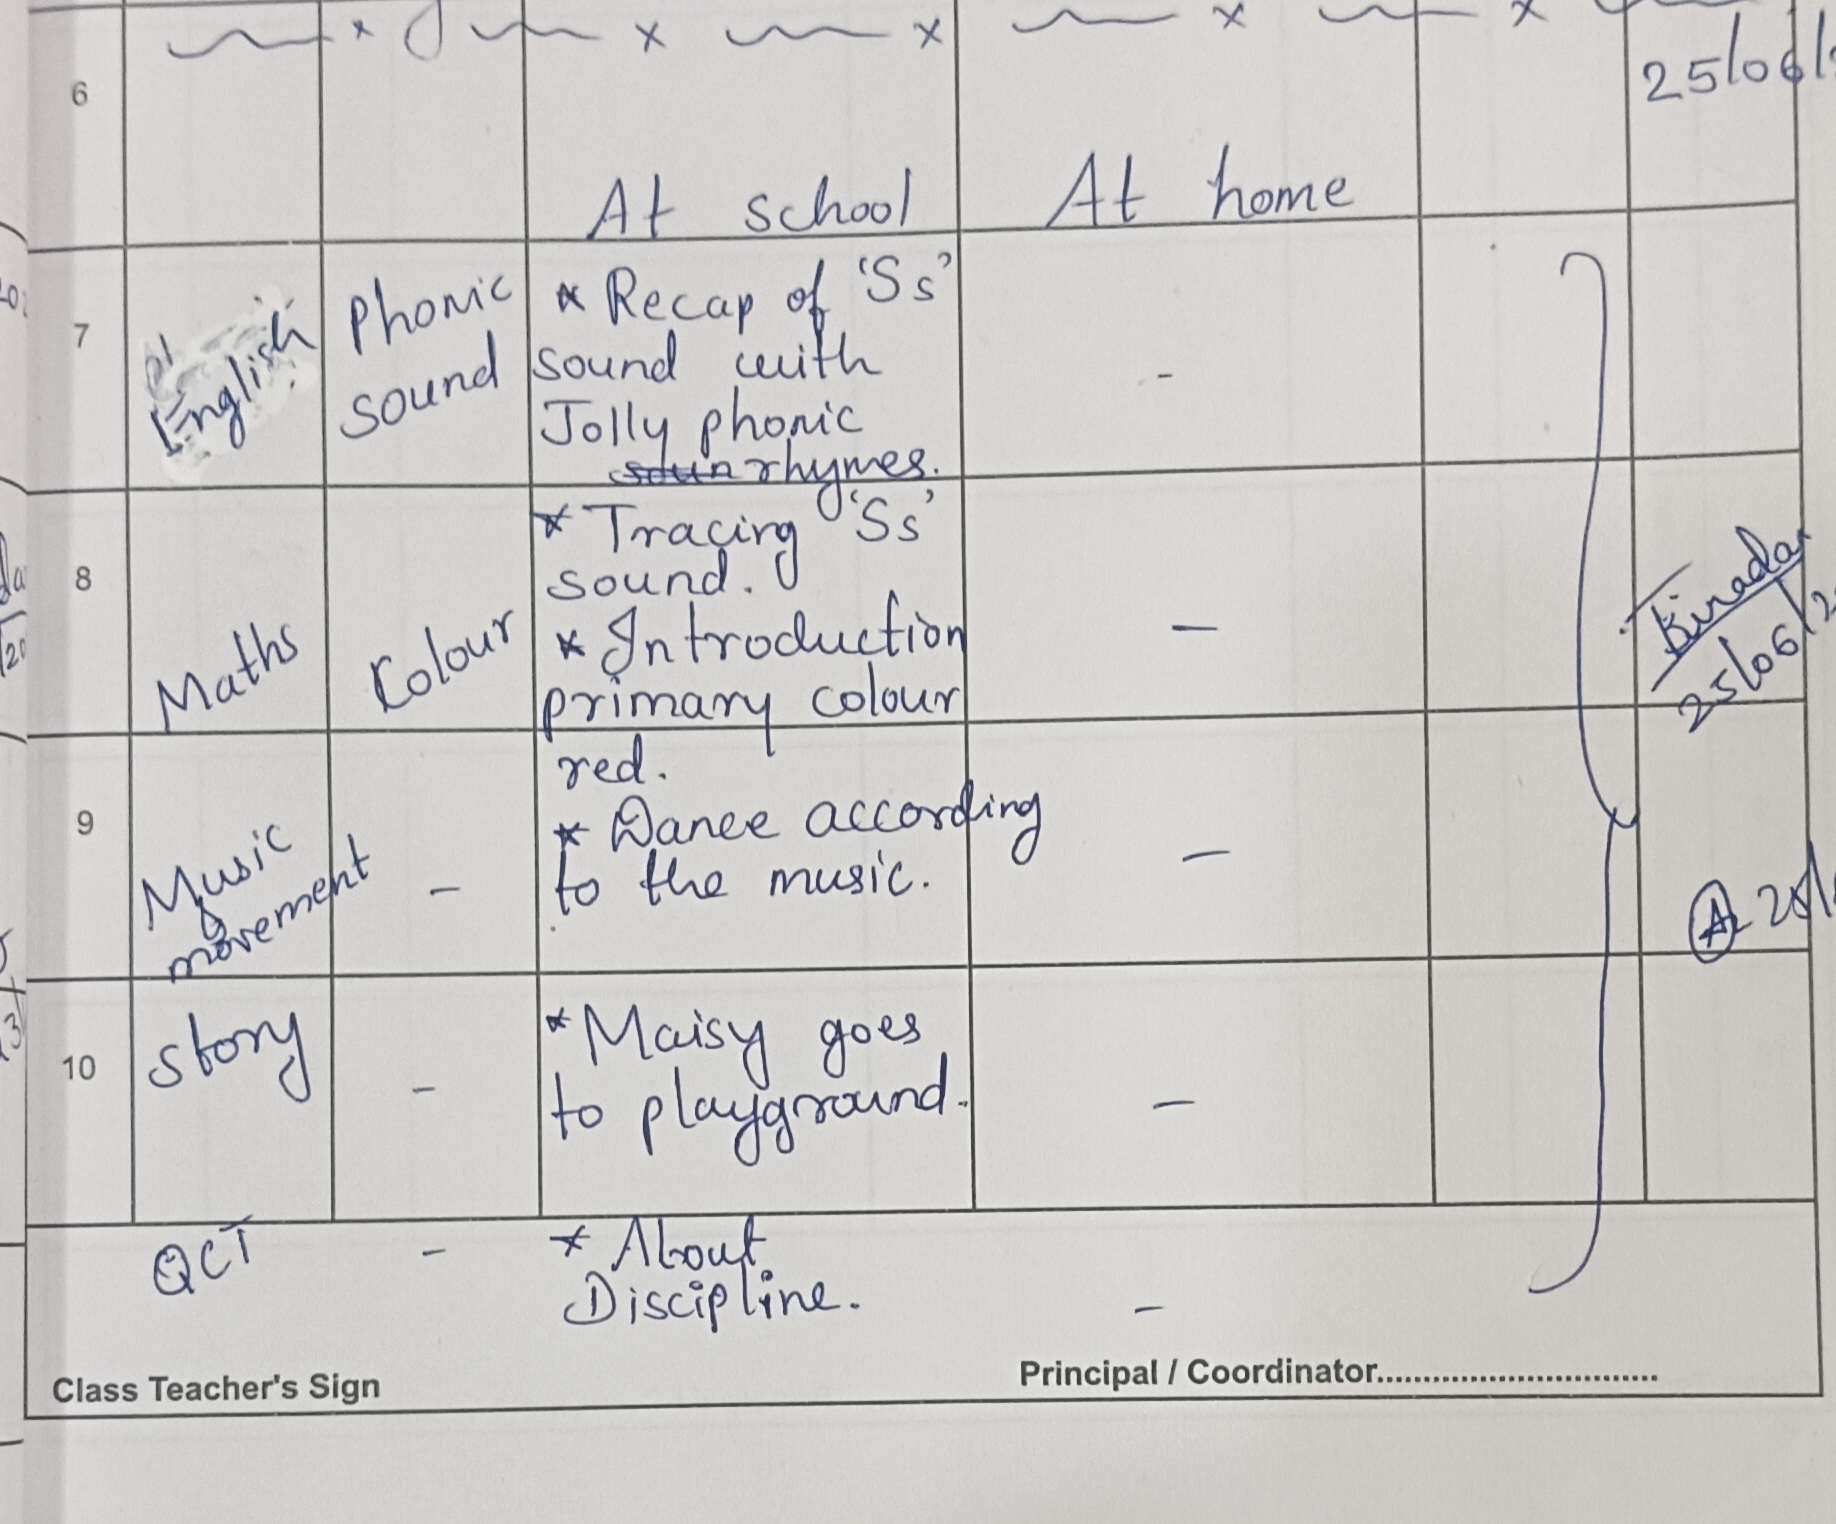 25/06/
6
At school At home
7
English
Phonic
sound
* Recap of 'Ss'
sound with
Jolly phonic
soun rhymes.
-
8
Maths
Colour
* Tracing 'Ss'
sound.
* Introduction
primary colour
red.
-
25/06/2
9
Music
movement
-
* Dance according
to the music.
-
10
Story
-
* Maisy goes
to playground.
-
QCT
-
* About
Discipline.
-
Class Teacher's Sign
Principal / Coordinator..............................